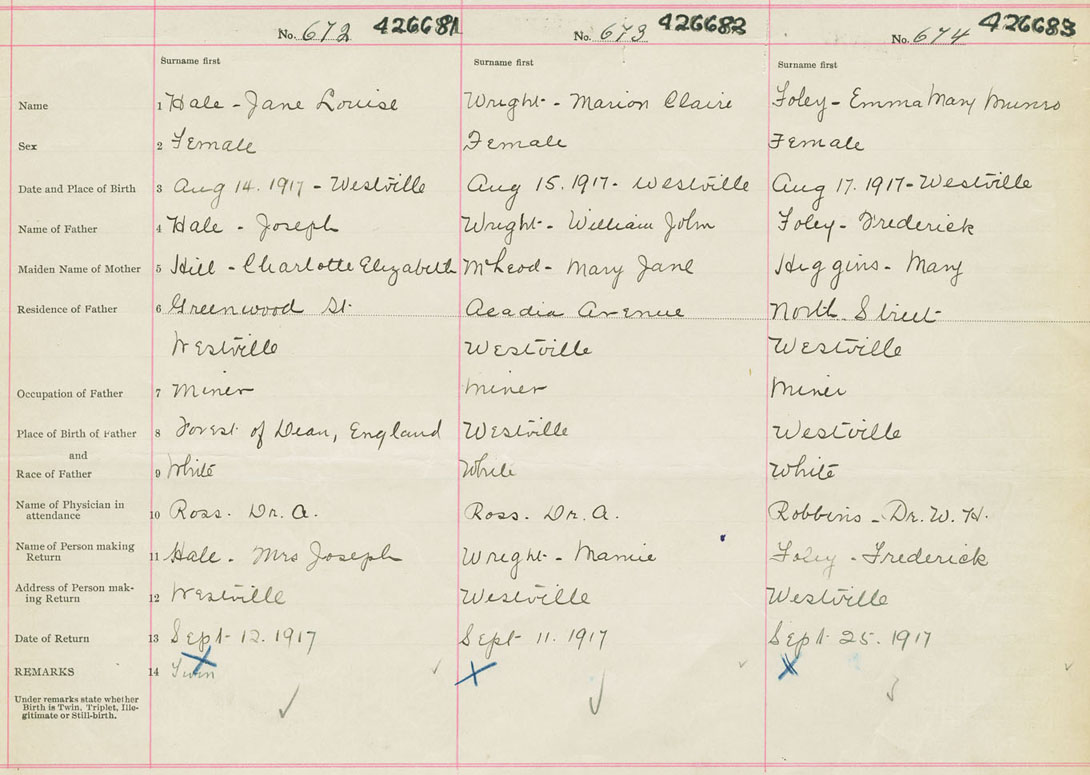 No. 672 426681 No. 673 426682 No. 674 426683
Surname first Surname first Surname first
Name 1 Hale - Jane Louise Wright - Marion Claire Foley - Emma Mary Munro
Sex 2 Female Female Female
Date and Place of Birth 3 Aug 14. 1917 - Westville Aug 15. 1917 - Westville Aug 17. 1917 - Westville
Name of Father 4 Hale - Joseph Wright - William John Foley - Frederick
Maiden Name of Mother 5 Hill - Charlotte Elizabeth McLeod - Mary Jane Higgins - Mary
Residence of Father 6 Greenwood St. Acadia Avenue North Street
Westville Westville Westville
Occupation of Father 7 Miner Miner Miner
Place of Birth of Father 8 Forest of Dean, England Westville Westville
and
Race of Father 9 White White White
Name of Physician in
attendance 10 Ross. Dr. A. Ross. Dr. A. Robbins - Dr. W. H.
Name of Person making
Return 11 Hale - Mrs Joseph Wright - Mamie Foley - Frederick
Address of Person mak-
ing Return 12 Westville Westville Westville
Date of Return 13 Sept 12. 1917 Sept 11. 1917 Sept 25. 1917
REMARKS 14 Twin
Under remarks state whether
Birth is Twin, Triplet, Ille-
gitimate or Still-birth.